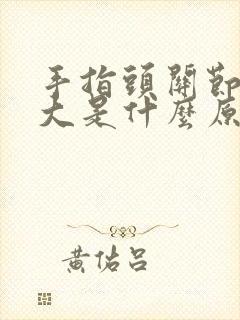 手指頭關節
大是什麼原
黃佑呂